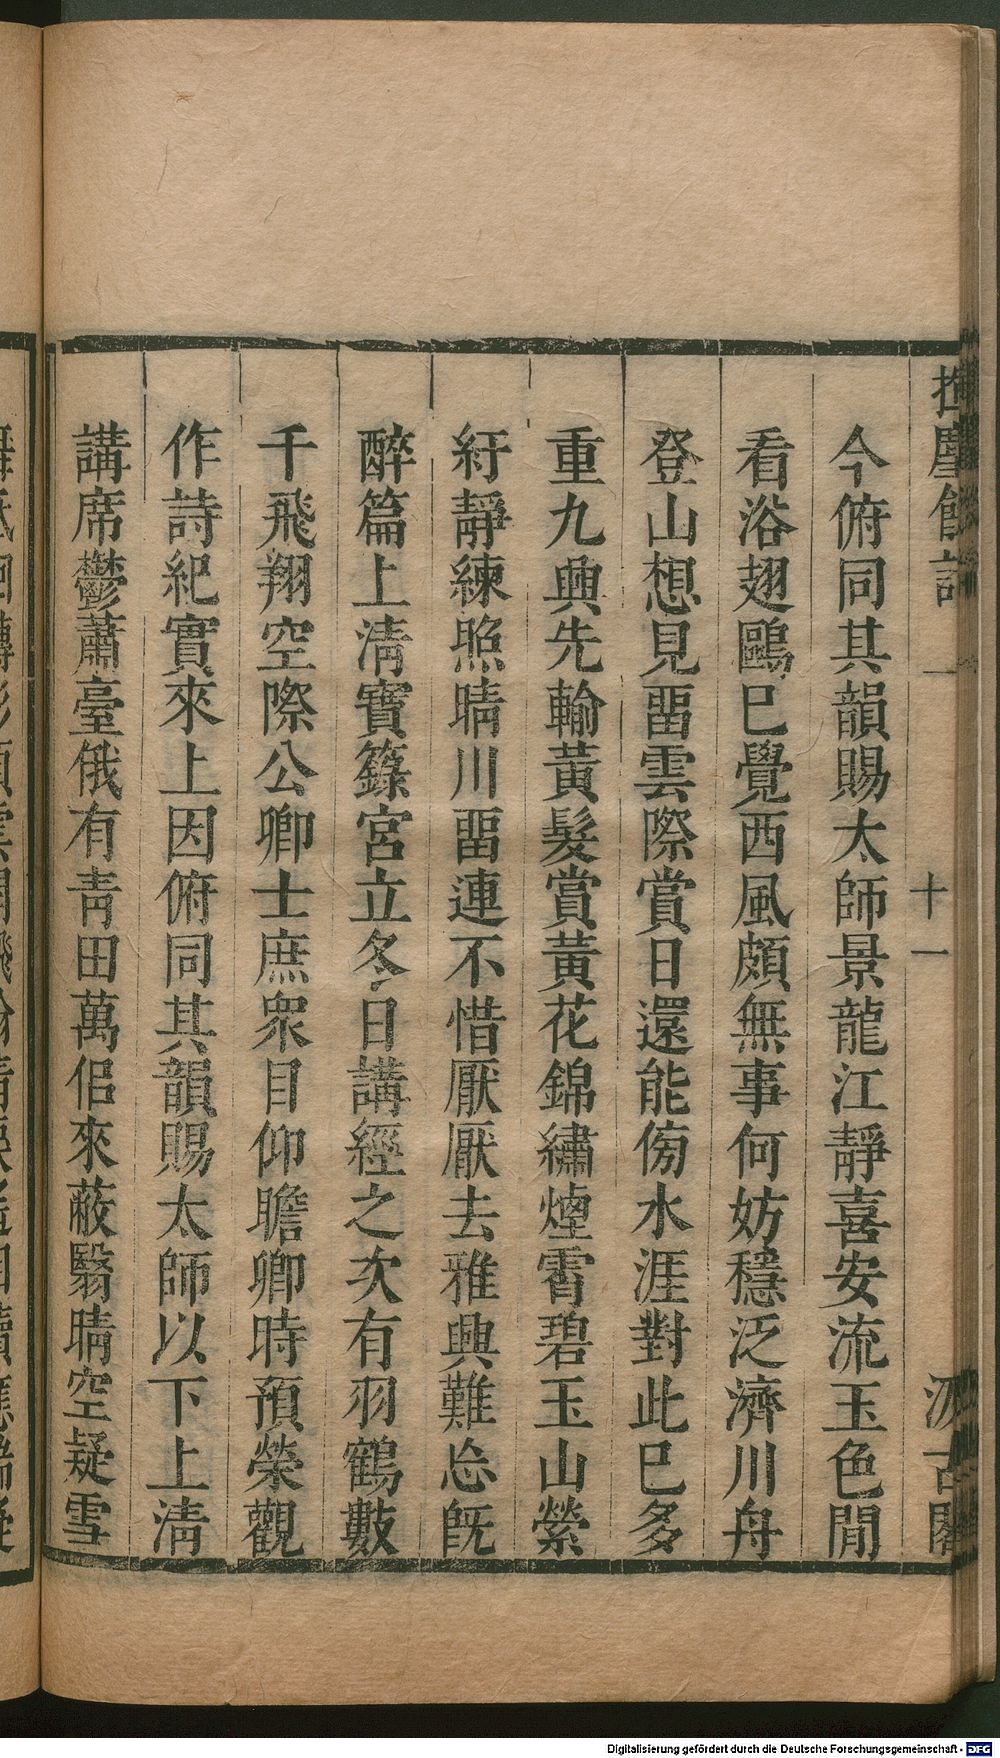 揮麈餘話 一 十一 汲古閣
今俯同其韻賜太師景龍江靜喜安流玉色閒
看浴翅鷗巳覺西風頗無事何妨穩泛濟川舟
登山想見畱雲際賞日還能傍水涯對此巳多
重九興先輸黃髮賞黃花錦繡煙霄碧玉山縈
紆靜練照晴川畱連不惜厭厭去雅興難忘旣
醉篇上淸寶籙宮立冬日講經之次有羽鶴數
千飛翔空際公卿士庶衆目仰瞻卿時預榮觀
作詩紀實來上因俯同其韻賜太師以下上淸
講席鬱蕭臺俄有靑田萬侶來蔽翳晴空疑雪
Digitalisierung gefördert durch die Deutsche Forschungsgemeinschaft - DFG